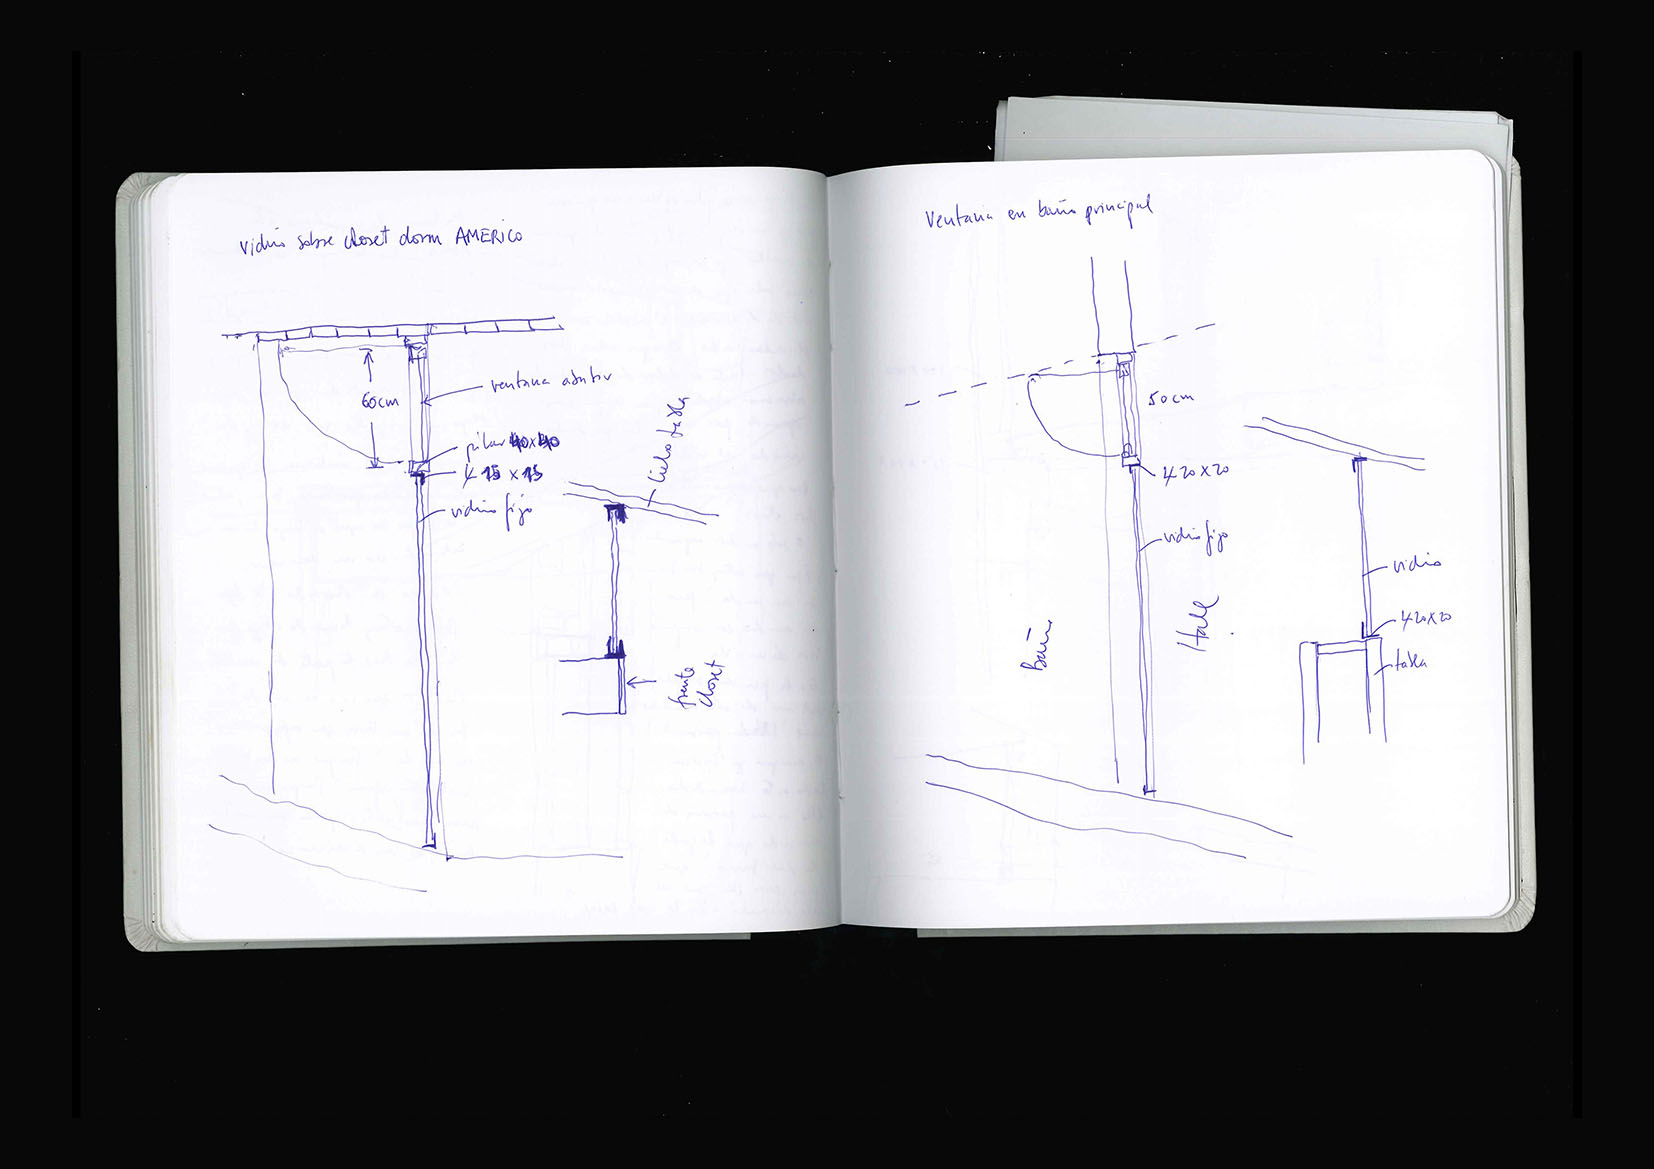 vidrio sobre closet dorm AMERICO
60cm
ventana abatir
pilar 40x40
L 15 x 15
vidrio fijo
cielo tabla
frente
closet
Ventana en baño principal
50cm
L 20x20
vidrio fijo
Baño
Hall
vidrio
L 20x20
tabla